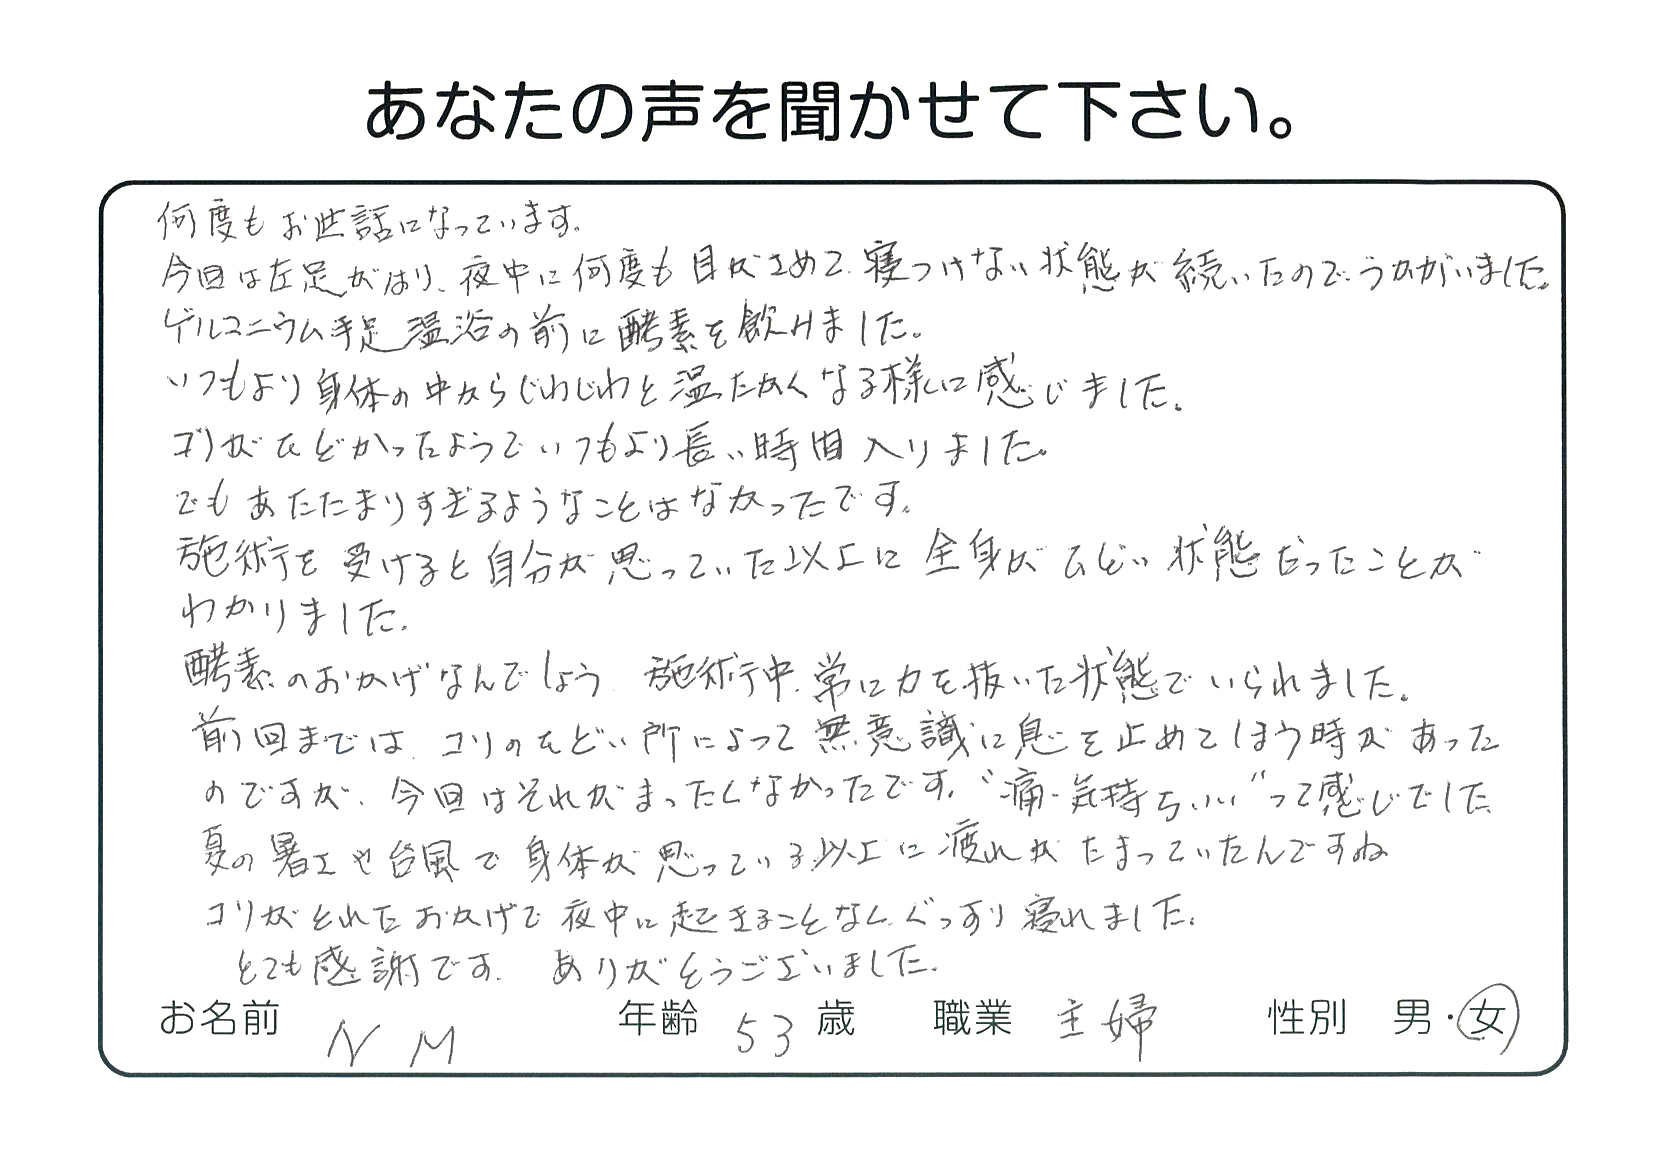 あなたの声を聞かせて下さい。
何度もお世話になっています。
今回は左足がはり、夜中に何度も目がさめて、寝つけない状態が続いたので、うかがいました。
ゲルマニウム手足温浴の前に酵素を飲みました。
いつもより身体の中からじわじわと温たかくなる様に感じました。
コリがひどかったようでいつもより長い時間入りました。
でもあたたまりすぎるようなことはなかったです。
施術を受けると自分が思っていた以上に全身がひどい状態だったことが
わかりました。
酵素のおかげなんでしょう 施術中、常に力を抜いた状態でいられました。
前回までは、コリのひどい所によって無意識に息を止めてしまう時があった
のですが、今回はそれがまったくなかったです。“痛・気持ちいい”って感じでした
夏の暑さや台風で身体が思っている以上に疲れがたまっていたんですね
コリがとれたおかげで夜中に起きることなく、ぐっすり寝れました。
とても感謝です。 ありがとうございました。
お名前 N M 年齢 53 歳 職業 主婦 性別 男・女